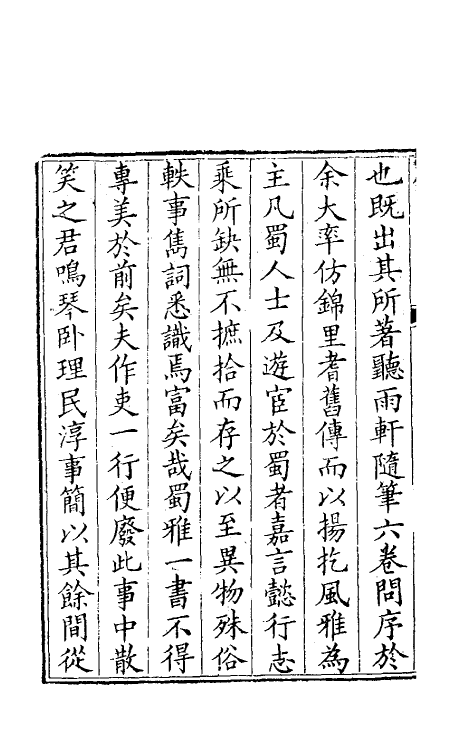 也既出其所著聽雨軒隨筆六卷問序於
余大率仿錦里耆舊傳而以揚扢風雅為
主凡蜀人士及遊宦於蜀者嘉言懿行志
乘所缺無不摭拾而存之以至異物殊俗
軼事雋詞悉識焉富矣哉蜀雅一書不得
專美於前矣夫作吏一行便廢此事中散
笑之君鳴琴卧理民淳事簡以其餘間從